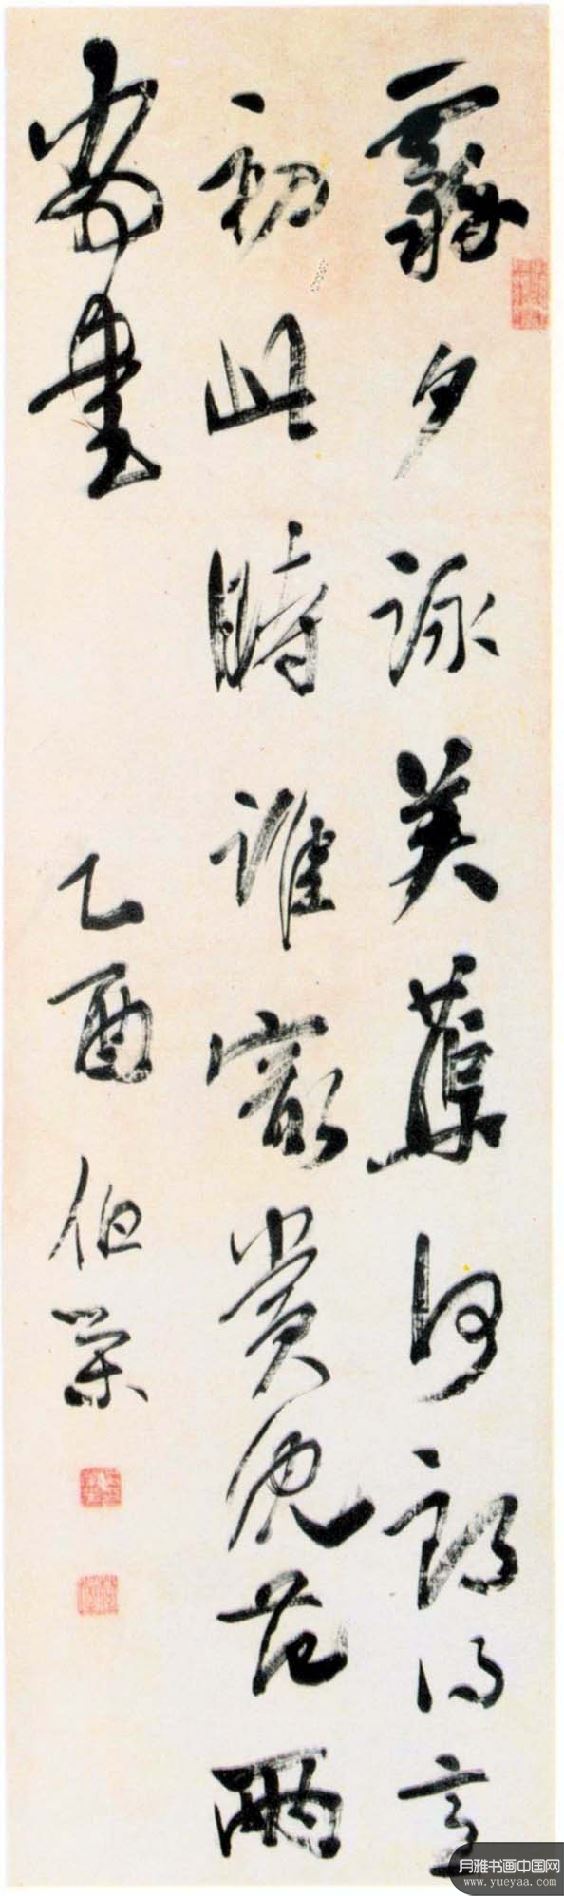 霽夕詠芙蕖何郎得意
初此時誰最賞沈范兩
尚書
乙酉伯榮
月雅书画中国网
www.yueyaa.com